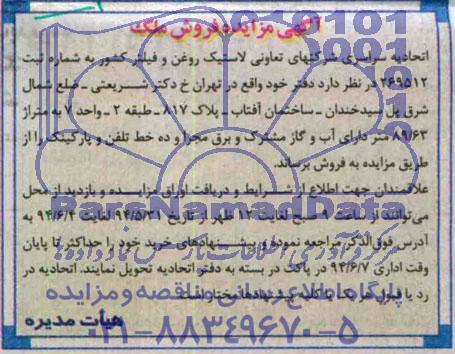 آگهی مزایده فروش ملک
اتحادیه سراسری شرکتهای تعاونی لاستیک روغن و فیلتر کشور به شماره ثبت
۲۶۹۵۱۲ در نظر دارد دفتر خود واقع در تهران خ دکتر شریعتی - ضلع شمال
شرق پل سیدخندان - ساختمان آفتاب - پلاک ۸۱۷ - طبقه ۲ - واحد ۷ به متراژ
۸۹/۶۳ متر دارای آب و گاز مشترک و برق مجزا و ده خط تلفن و پارکینگ را از
طریق مزایده به فروش برساند.
علاقمندان جهت اطلاع از شرایط و دریافت اوراق مزایده و بازدید از محل
می‌توانند از ساعت ۹ صبح لغایت ۱۲ ظهر از تاریخ ۹۴/۵/۳۱ لغایت ۹۴/۶/۴ به
آدرس فوق‌الذکر مراجعه نموده و پیشنهادهای خرید خود را حداکثر تا پایان
وقت اداری ۹۴/۶/۷ در پاکت در بسته به دفتر اتحادیه تحویل نمایند. اتحادیه در
رد یا قبول هر یک یا کلیه پیشنهادها مختار است.
هیأت مدیره
ParsNamadData
پایگاه اطلاع رسانی مناقصه و مزایده
۰۲۱-۸۸۳۴۹۶۷۰-۵